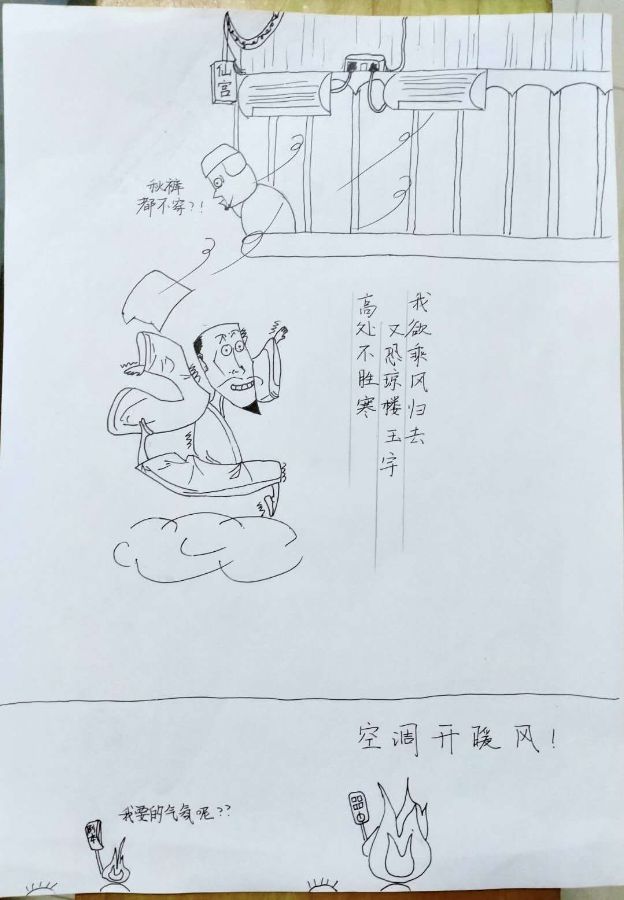 仙宫
秋裤
都不穿?!
我欲乘风归去
又恐琼楼玉宇
高处不胜寒
空调开暖风!
我要的气氛呢??
剧本